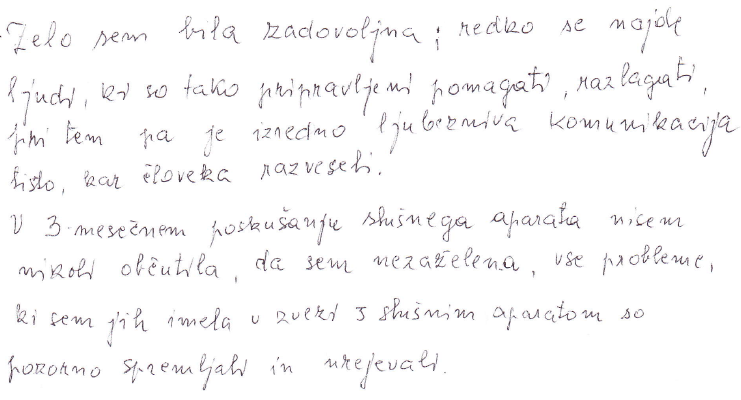 Zelo sem bila zadovoljna; redko se najde
ljudi, ki so tako pripravljeni pomagati, razlagati,
pri tem pa je izredno ljubezniva komunikacija
tisto, kar človeka razveseli.
V 3-mesečnem poskušanju slušnega aparata nisem
nikoli občutila, da sem nezaželena, vse probleme,
ki sem jih imela v zvezi s slušnim aparatom so
pozorno spremljali in urejevali.